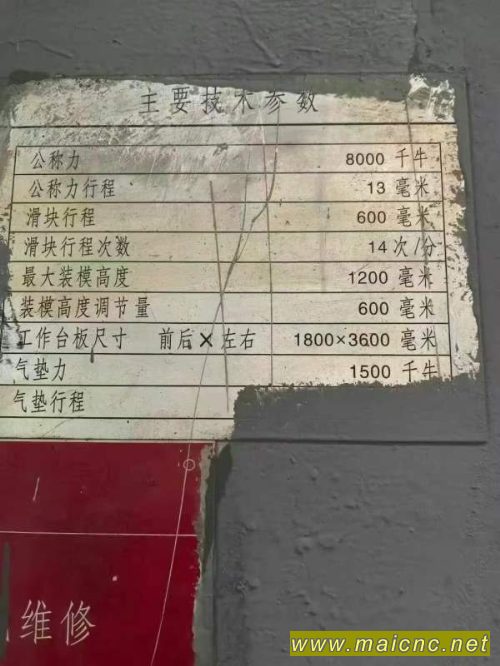 主要技术参数
公称力 8000 千牛
公称力行程 13 毫米
滑块行程 600 毫米
滑块行程次数 14 次/分
最大装模高度 1200 毫米
装模高度调节量 600 毫米
工作台板尺寸 前后×左右 1800×3600 毫米
气垫力 1500 千牛
气垫行程
维修
www.maicnc.net